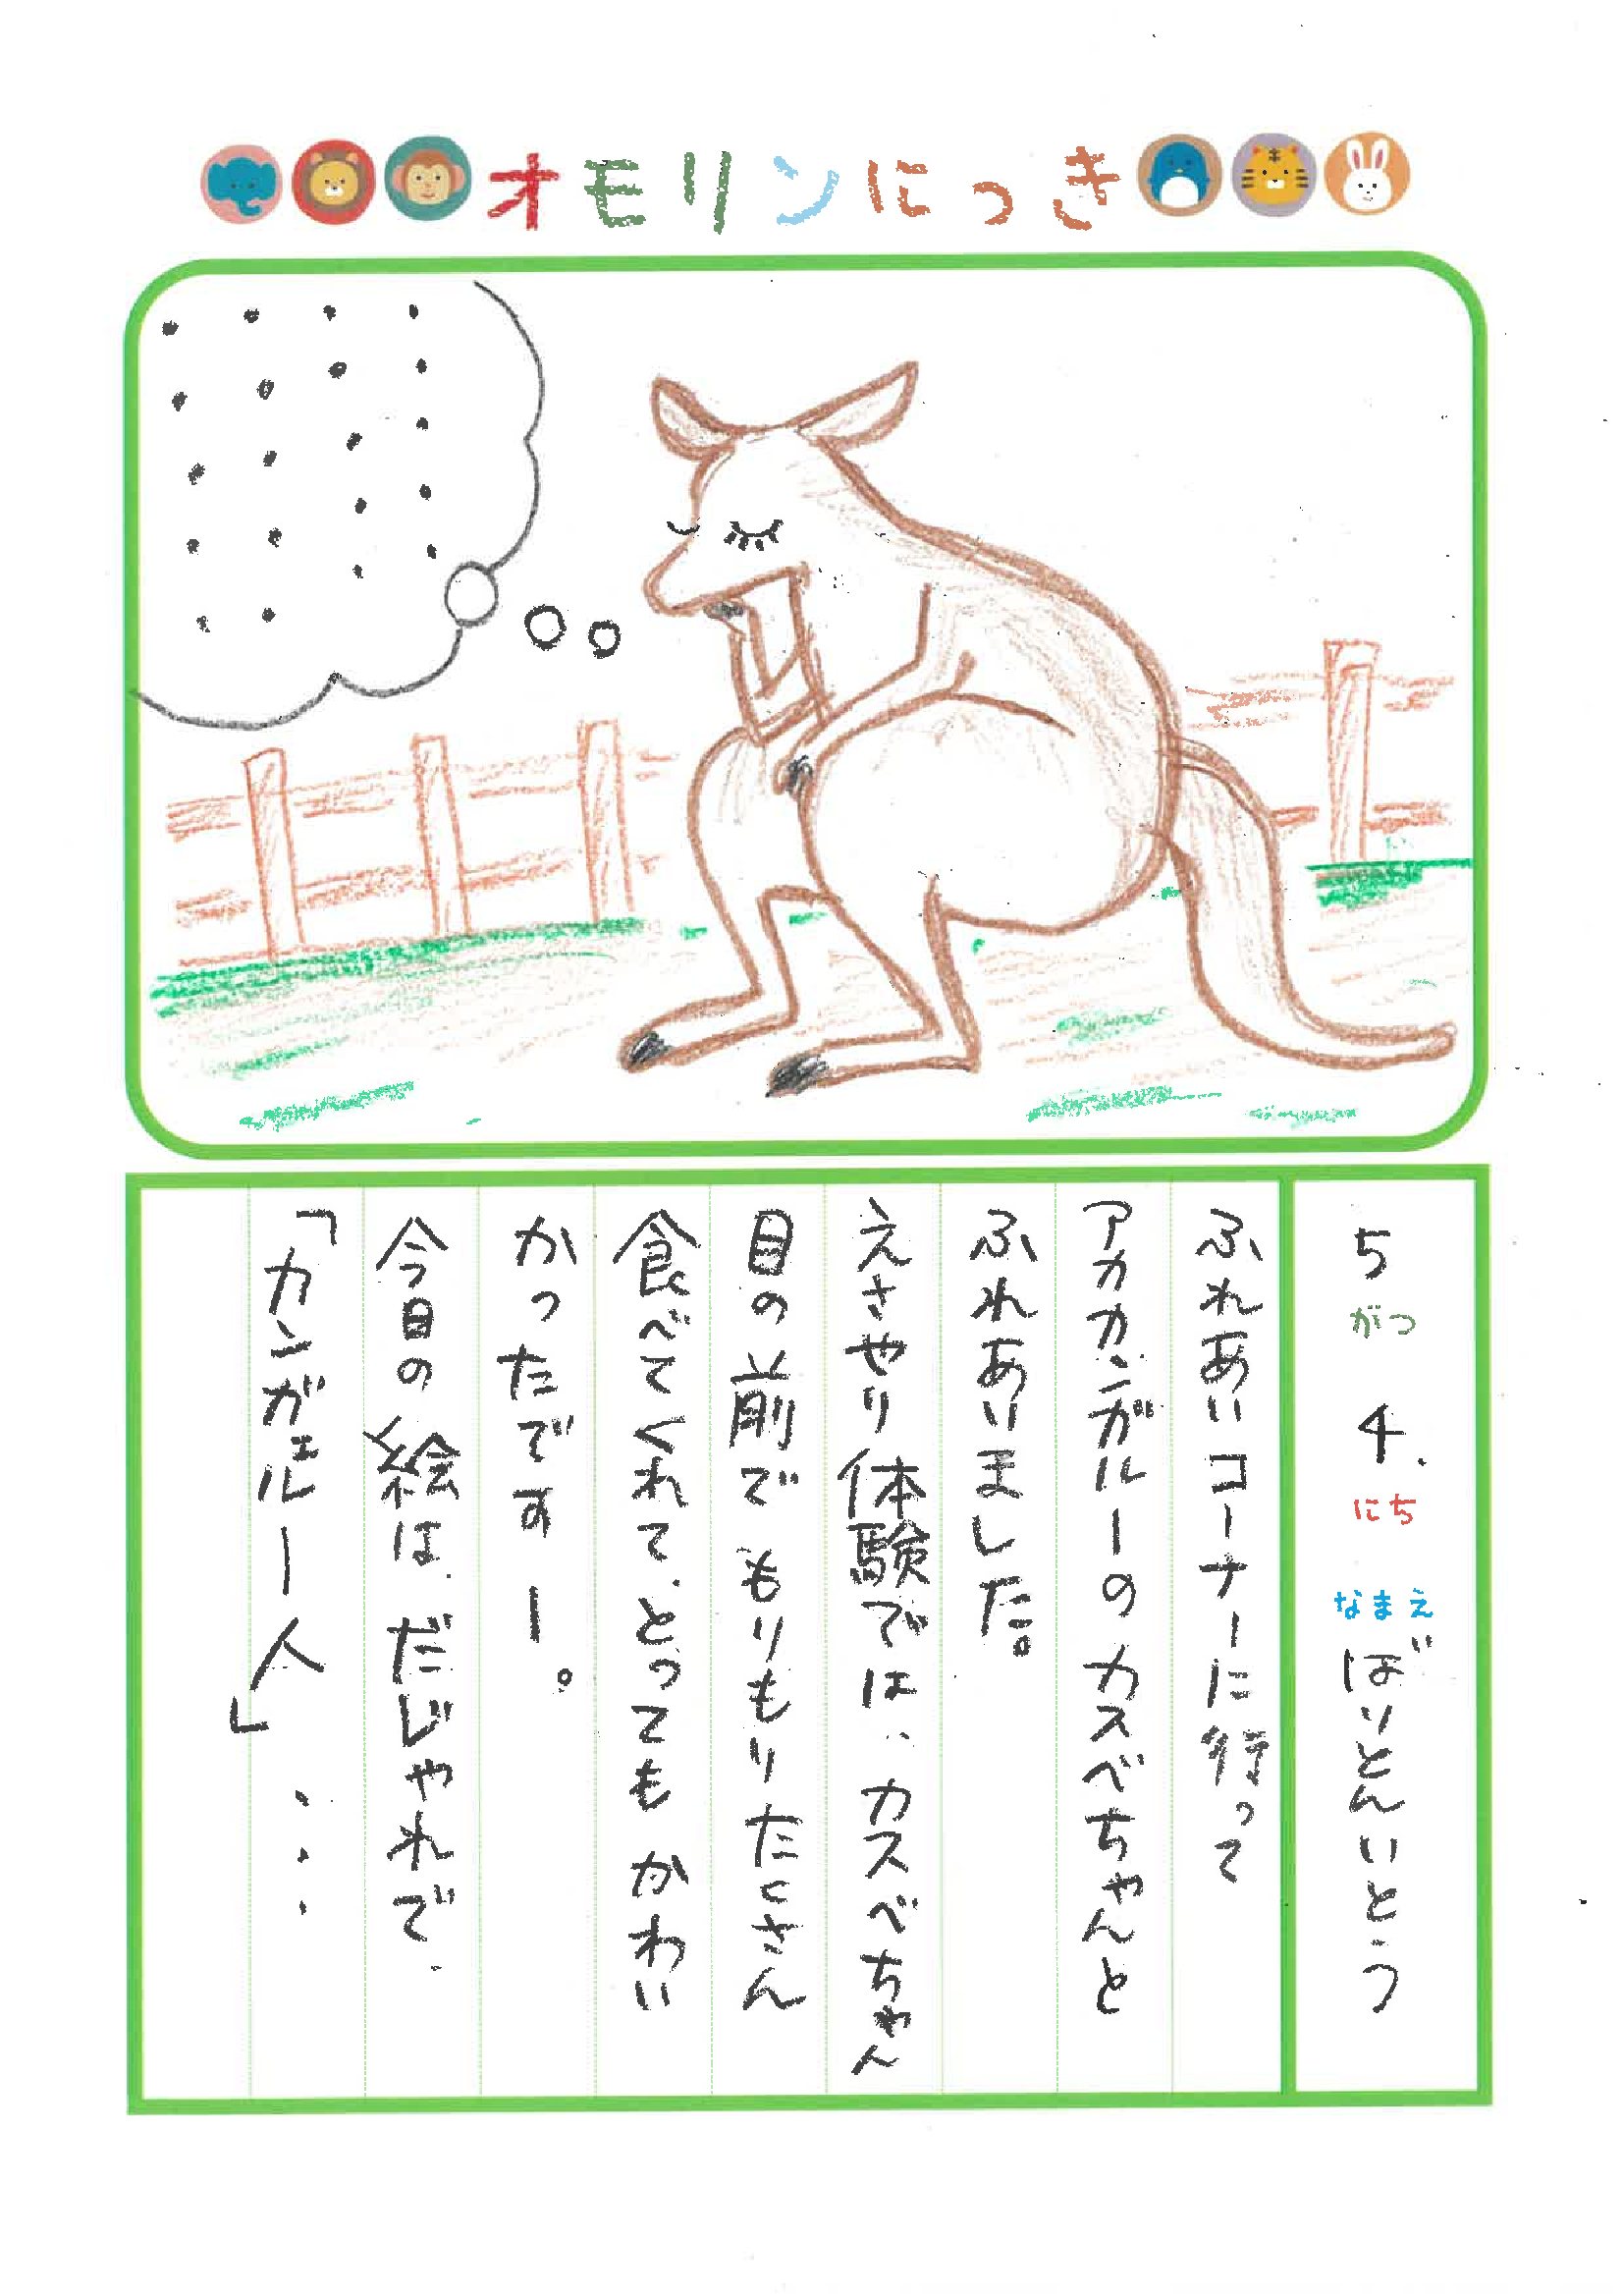 オモリンにっき
5がつ 4にち なまえ ばりとんいとう
ふれあいコーナーに行って
アカカンガルーのカスベちゃんと
ふれあいました。
えさやり体験では、カスベちゃん
目の前でもりもりたくさん
食べてくれて、とってもかわい
かったですー。
今日の絵は、だじゃれで、
「カンガェルー人」・・・